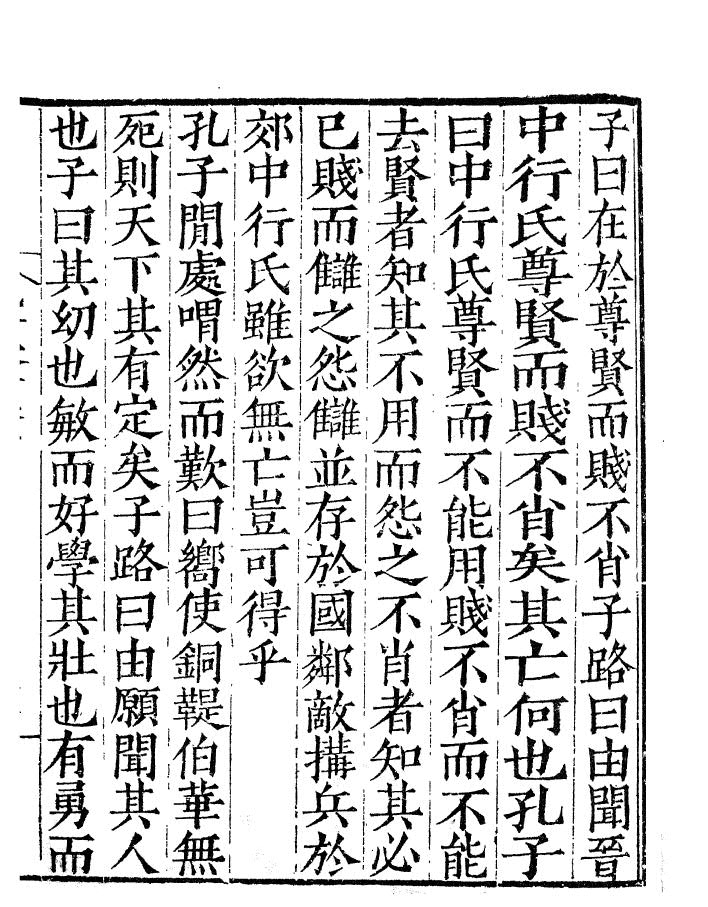 子曰在於尊賢而賤不肖子路曰由聞晉
中行氏尊賢而賤不肖矣其亡何也孔子
曰中行氏尊賢而不能用賤不肖而不能
去賢者知其不用而怨之不肖者知其必
已賤而讎之怨讎並存於國鄰敵搆兵於
郊中行氏雖欲無亡豈可得乎
孔子閒處喟然而歎曰嚮使銅鞮伯華無
死則天下其有定矣子路曰由願聞其人
也子曰其幼也敏而好學其壯也有勇而